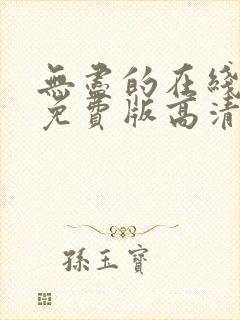 無盡的在綫
免費版高清
孫玉寶